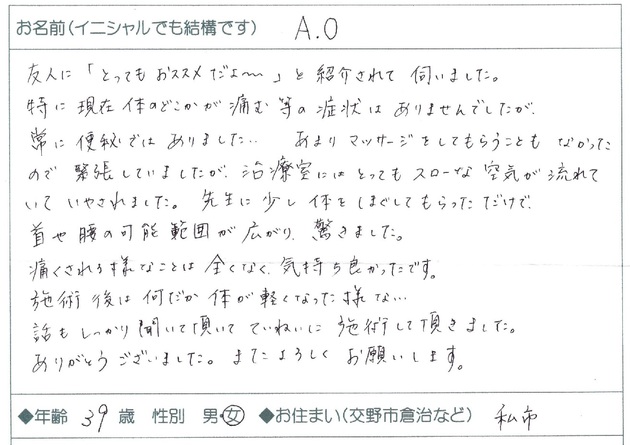 お名前(イニシャルでも結構です) A.O
友人に「とってもおススメだよ〜」と紹介されて伺いました。
特に現在体のどこかが痛む等の症状はありませんでしたが、
常に便秘ではありました… あまりマッサージをしてもらうことも なかった
ので 緊張していましたが、治療室にはとってもスローな空気が流れて
いて いやされました。先生に少し体をほぐしてもらっただけで、
首や腰の可能範囲が広がり、驚きました。
痛くされる様なことは全くなく、気持ち良かったです。
施術後は何だか体が軽くなった様な…
話もしっかり聞いて頂いて ていねいに施術して頂きました。
ありがとうございました。またよろしくお願いします。
◆年齢 39 歳 性別 男・女 ◆お住まい(交野市倉治など) 私市